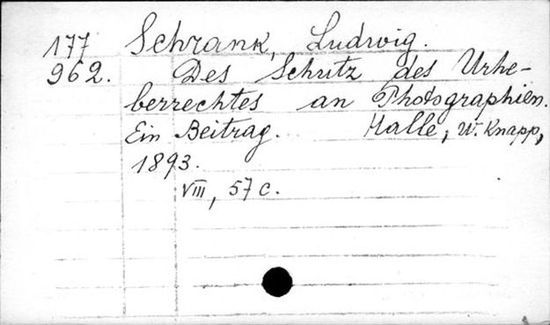 177 Schrank, Ludwig.
962. Des Schutz des Urhe-
berrechtes an Photographien.
Ein Beitrag. Halle, W. Knapp,
1893.
VIII, 57 c.